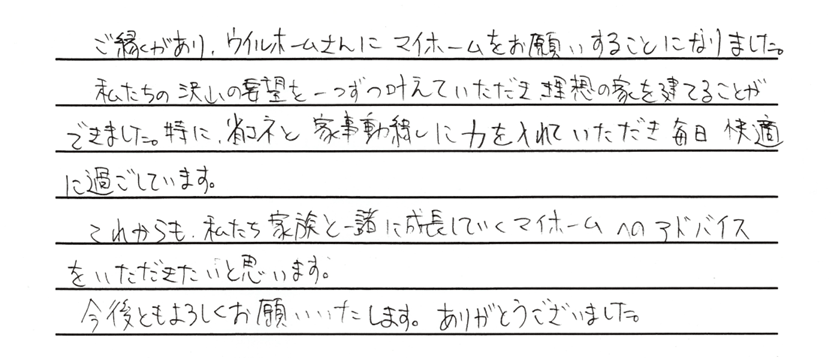 ご縁があり、ウイルホームさんに マイホームをお願いすることになりました。
私たちの沢山の要望を一つずつ叶えていただき 理想の家を建てることが
できました。特に、省エネと 家事動線に力を入れていただき 毎日 快適
に過ごしています。
これからも、私たち家族と一諸に成長していくマイホームへのアドバイス
をいただきたいと思います。
今後ともよろしくお願いいたします。ありがとうございました。